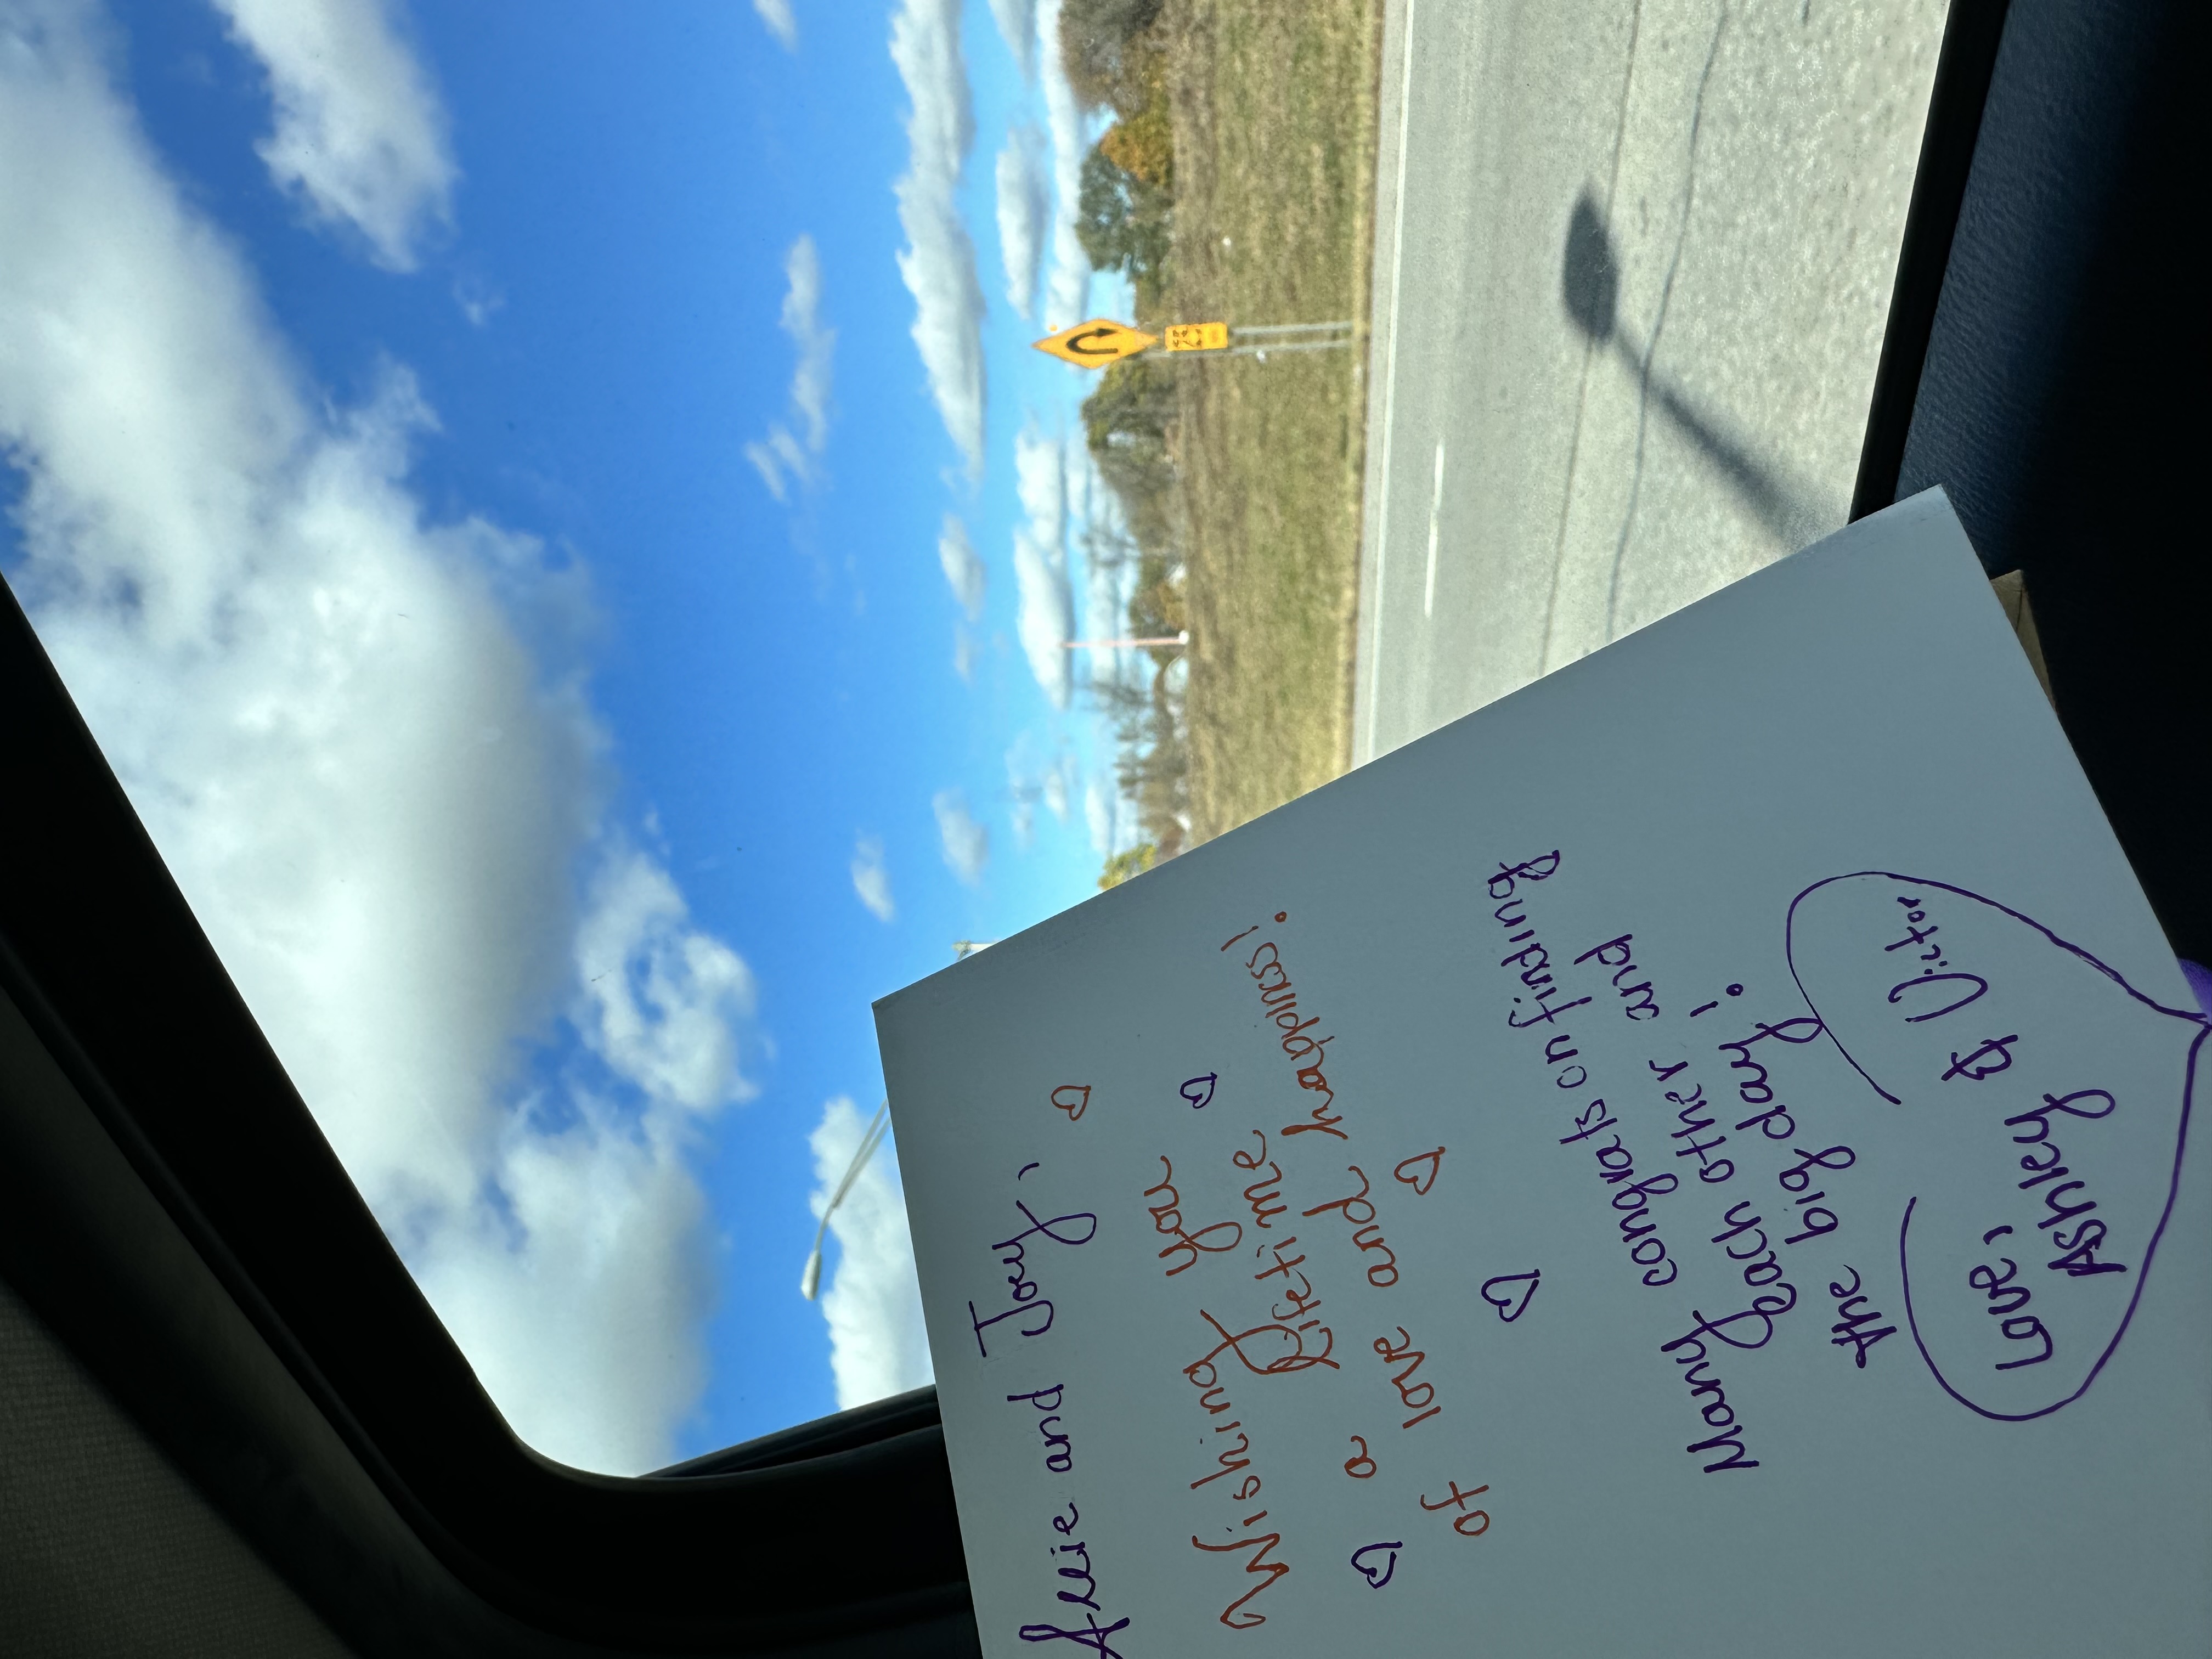 Allie and Joey,
Wishing you
a lifetime
of love and happiness!
Many congrats on finding
each other and
the big day!
Love,
Ashley & Victor